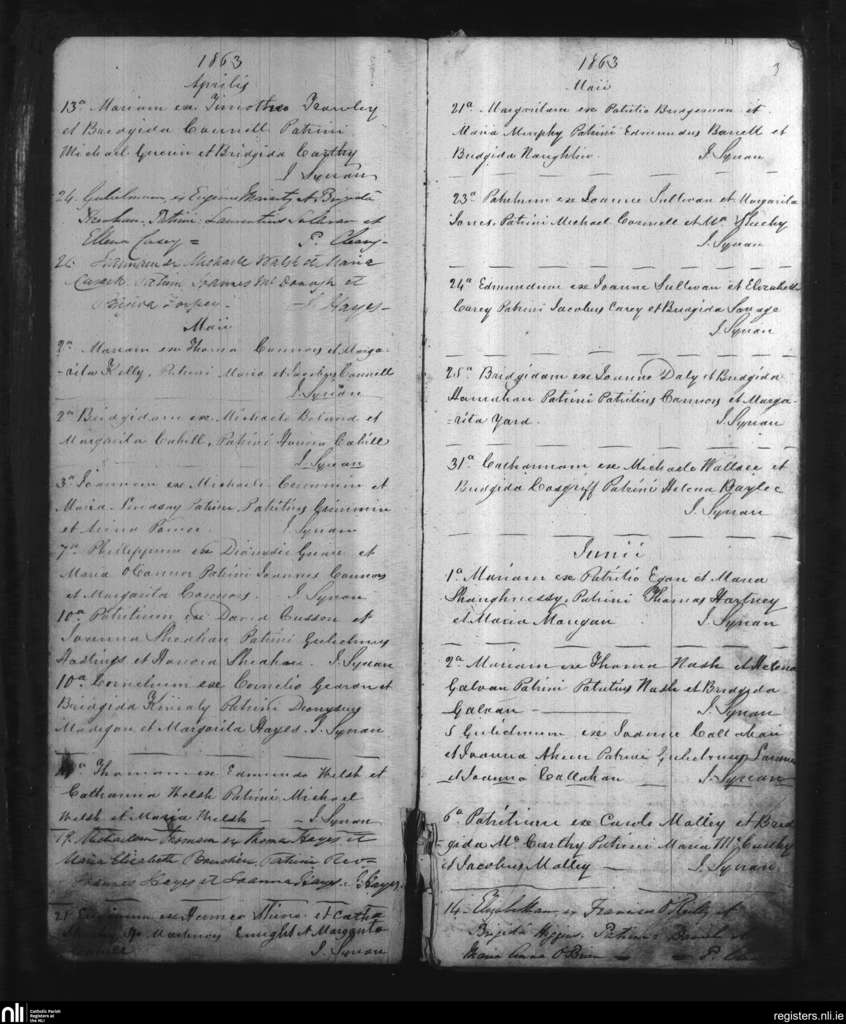 1863
Aprilis
13a Mariam ex Timotheo Frawley
et Bridgida Connell Patrini
Michael Guerin et Bridgida Carthy
J. Synan
24. Gulielmum ex Eugenio Moriarty et Brigida
Patrini Laurentius Sullivan et
Ellena Casey = P. Cleary
26. Michaele Walsh et Maria
Cusack Patrini Joannes McDonogh et
J. Hayes
Maii
2a Mariam ex Thoma Connors et Marga-
-rita Kelly, Patrini Maria et Jacobus Connell
J. Synan
2a Bridgidam ex Michaele Boland et
Margarita Cahill, Patrini Honora Cahill
J. Synan
3a Joannem ex Michaele Cummin et
Maria Lindsay Patrini Patritius Cummin
et Anna Power J. Synan
7a Philippum ex Dionisio Guare et
Maria O'Connor Patrini Joannes Connors
et Margarita Connors. J. Synan
10a Patritium ex David Cusson et
Joanna Sheehan Patrini Gulielmus
Hastings et Honora Sheahan. J. Synan
10a Cornelium ex Cornelio Gearon et
Bridgida Kiniely Patrini Dionysius
Madigan et Margarita Hayes. J. Synan
Thomam ex Edmundo Welsh et
Catharina Welsh Patrini Michael
Welsh et Maria Welsh J. Synan
17. Michaelem Thomam ex Thoma Hayes et
Maria Elizabeth Bourchier, Patrini Rev
Joannes Hayes et Joanna Hayes. J. Hayes.
21. ex et Catha
Enright et Margarita
J. Synan
1863
3
Maii
21a Margaritam ex Patritio Bridgeman et
Maria Murphy Patrini Edmundus Barrett et
Bridgida Naughton J. Synan
23a Patritium ex Joanne Sullivan et Margarita
Jones, Patrini Michael Connell et Ma Sheehy
J. Synan
24a Edmundum ex Joanne Sullivan et Elizabeth
Carey Patrini Jacobus Carey et Bridgida Savage
J. Synan
25a Bridgidam ex Joanne Daly et Bridgida
Hanrahan Patrini Patritius Connors et Marga-
-rita Yard. J. Synan
31a Catharinam ex Michaele Wallace et
Bridgida Cosgriff Patrini Helena Baylee
J. Synan
Junii
1a Mariam ex Patritio Egan et Maria
Shaughnessy, Patrini Thomas Hartney
et Maria Mangan J. Synan
2a Mariam ex Thoma Nash et Helena
Galvan Patrini Patritius Nash et Bridgida
Galvan J. Synan
5 Gulielmum ex Joanne Callahan
et Joanna Ahern Patrini Gulielmus
et Joanna Callahan J. Synan
6a Patritium ex Carolo Malley et Brid
-gida McCarthy Patrini Maria McCarthy
et Jacobus Malley J. Synan
14. Elizabetham ex Francisco O'Reilly et
Brigida Higgins. Patrini Daniel et
Maria Anna O'Brien
nli
Catholic Parish
Registers at
the NLI
registers.nli.ie